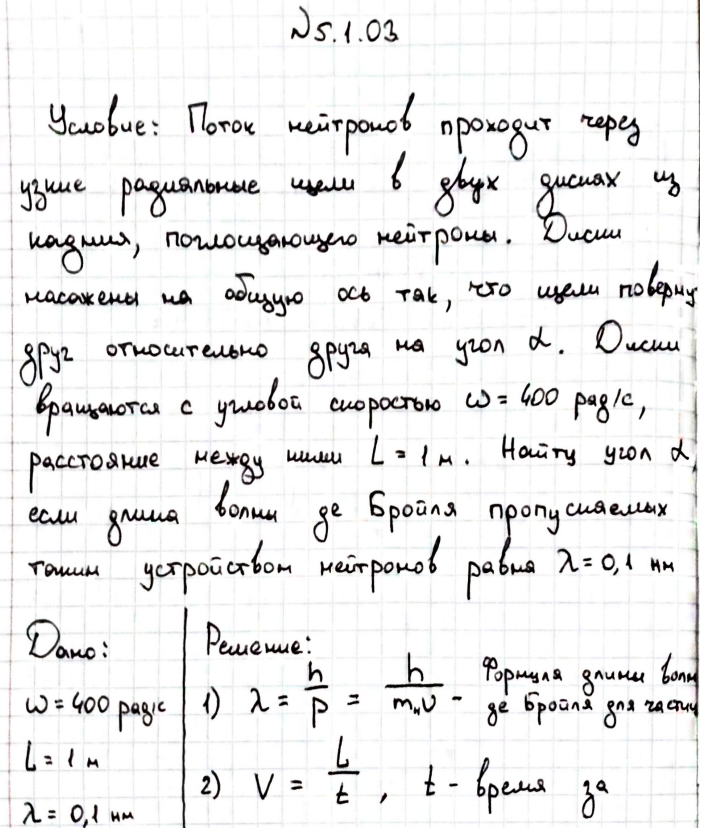 №5.1.03
Условие: Поток нейтронов проходит через
узкие радиальные щели в двух дисках из
кадмия, поглощающего нейтроны. Диски
насажены на общую ось так, что щели поверну
друг относительно друга на угол α. Диски
вращаются с угловой скоростью ω = 400 рад/с,
расстояние между ними L = 1 м. Найти угол α,
если длина волны де Бройля пропускаемых
таким устройством нейтронов равна λ = 0,1 нм
Дано:
ω = 400 рад/с
L = 1 м
λ = 0,1 нм
Решение:
1) λ = h/p = h/(mₙv) - Формула длины волн
де Бройля для части
2) V = L/t, t - время за